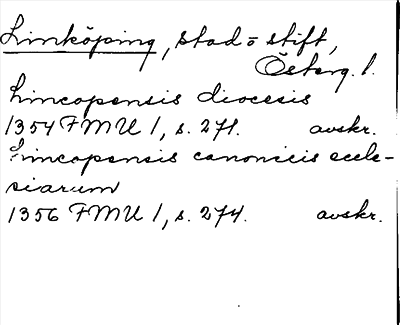 Linköping, stad o stift,
Österg. l.
Lincopensis diocesis
1354 FMU 1, s. 271. avskr.
Lincopensis canonicis eccle-
siarum
1356 FMU 1, s. 274. avskr.